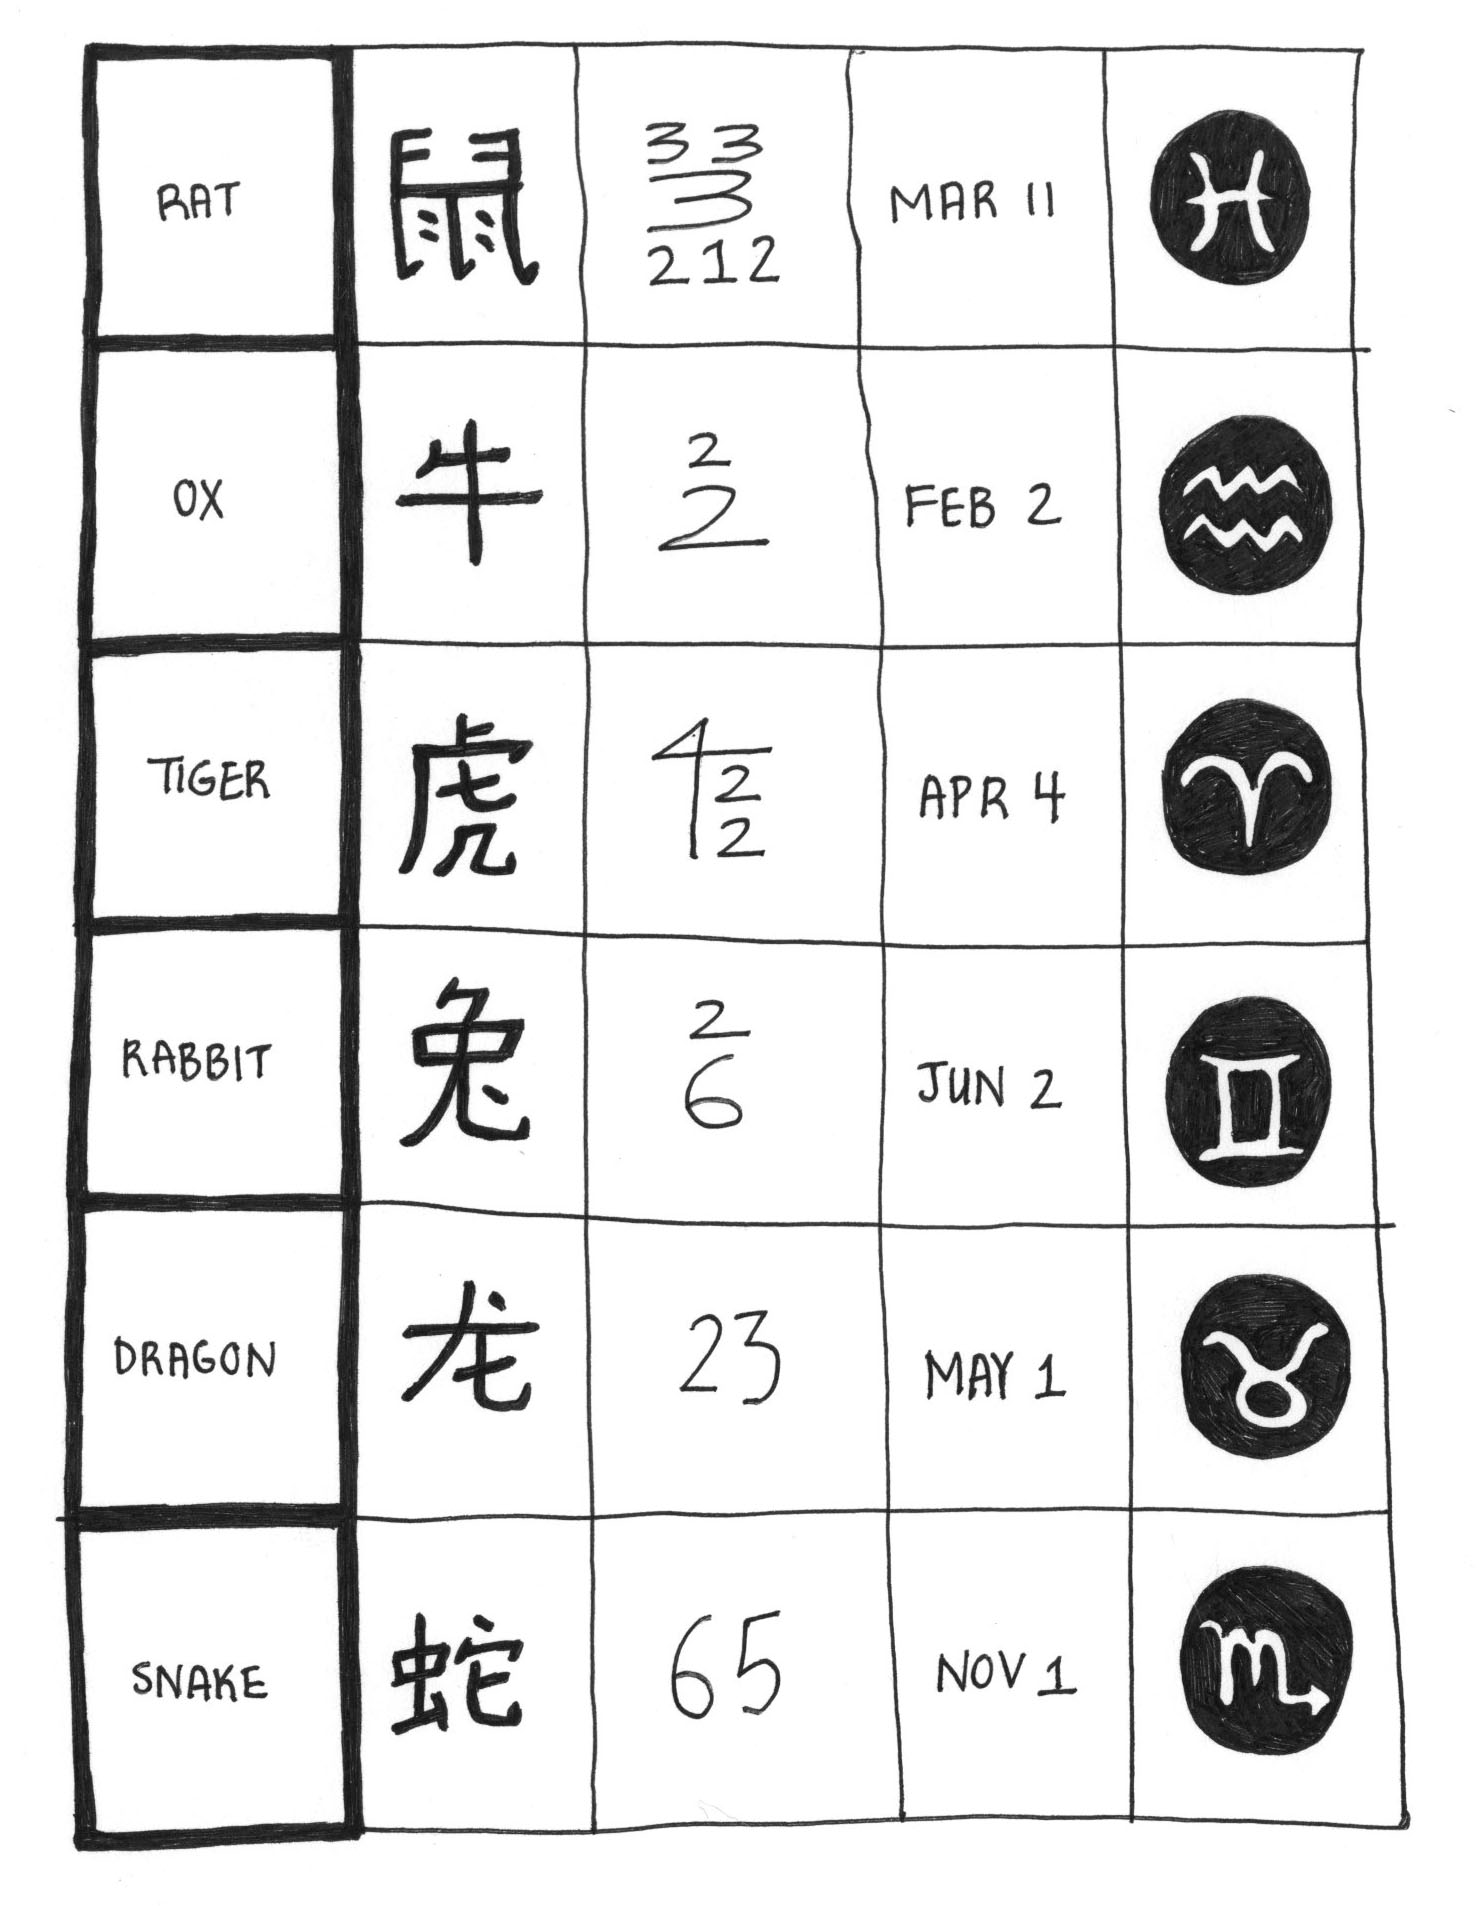 RAT 鼠 3 3
3
2 1 2 MAR 11 ♓
OX 牛 2
2 FEB 2 ♒
TIGER 虎 4 2
2 APR 4 ♈
RABBIT 兔 2
6 JUN 2 ♊
DRAGON 龙 23 MAY 1 ♉
SNAKE 蛇 65 NOV 1 ♏